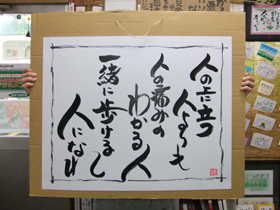 人の上に立つ
人よりも
人の痛みの
わかる人
一緒に歩ける
人になれ